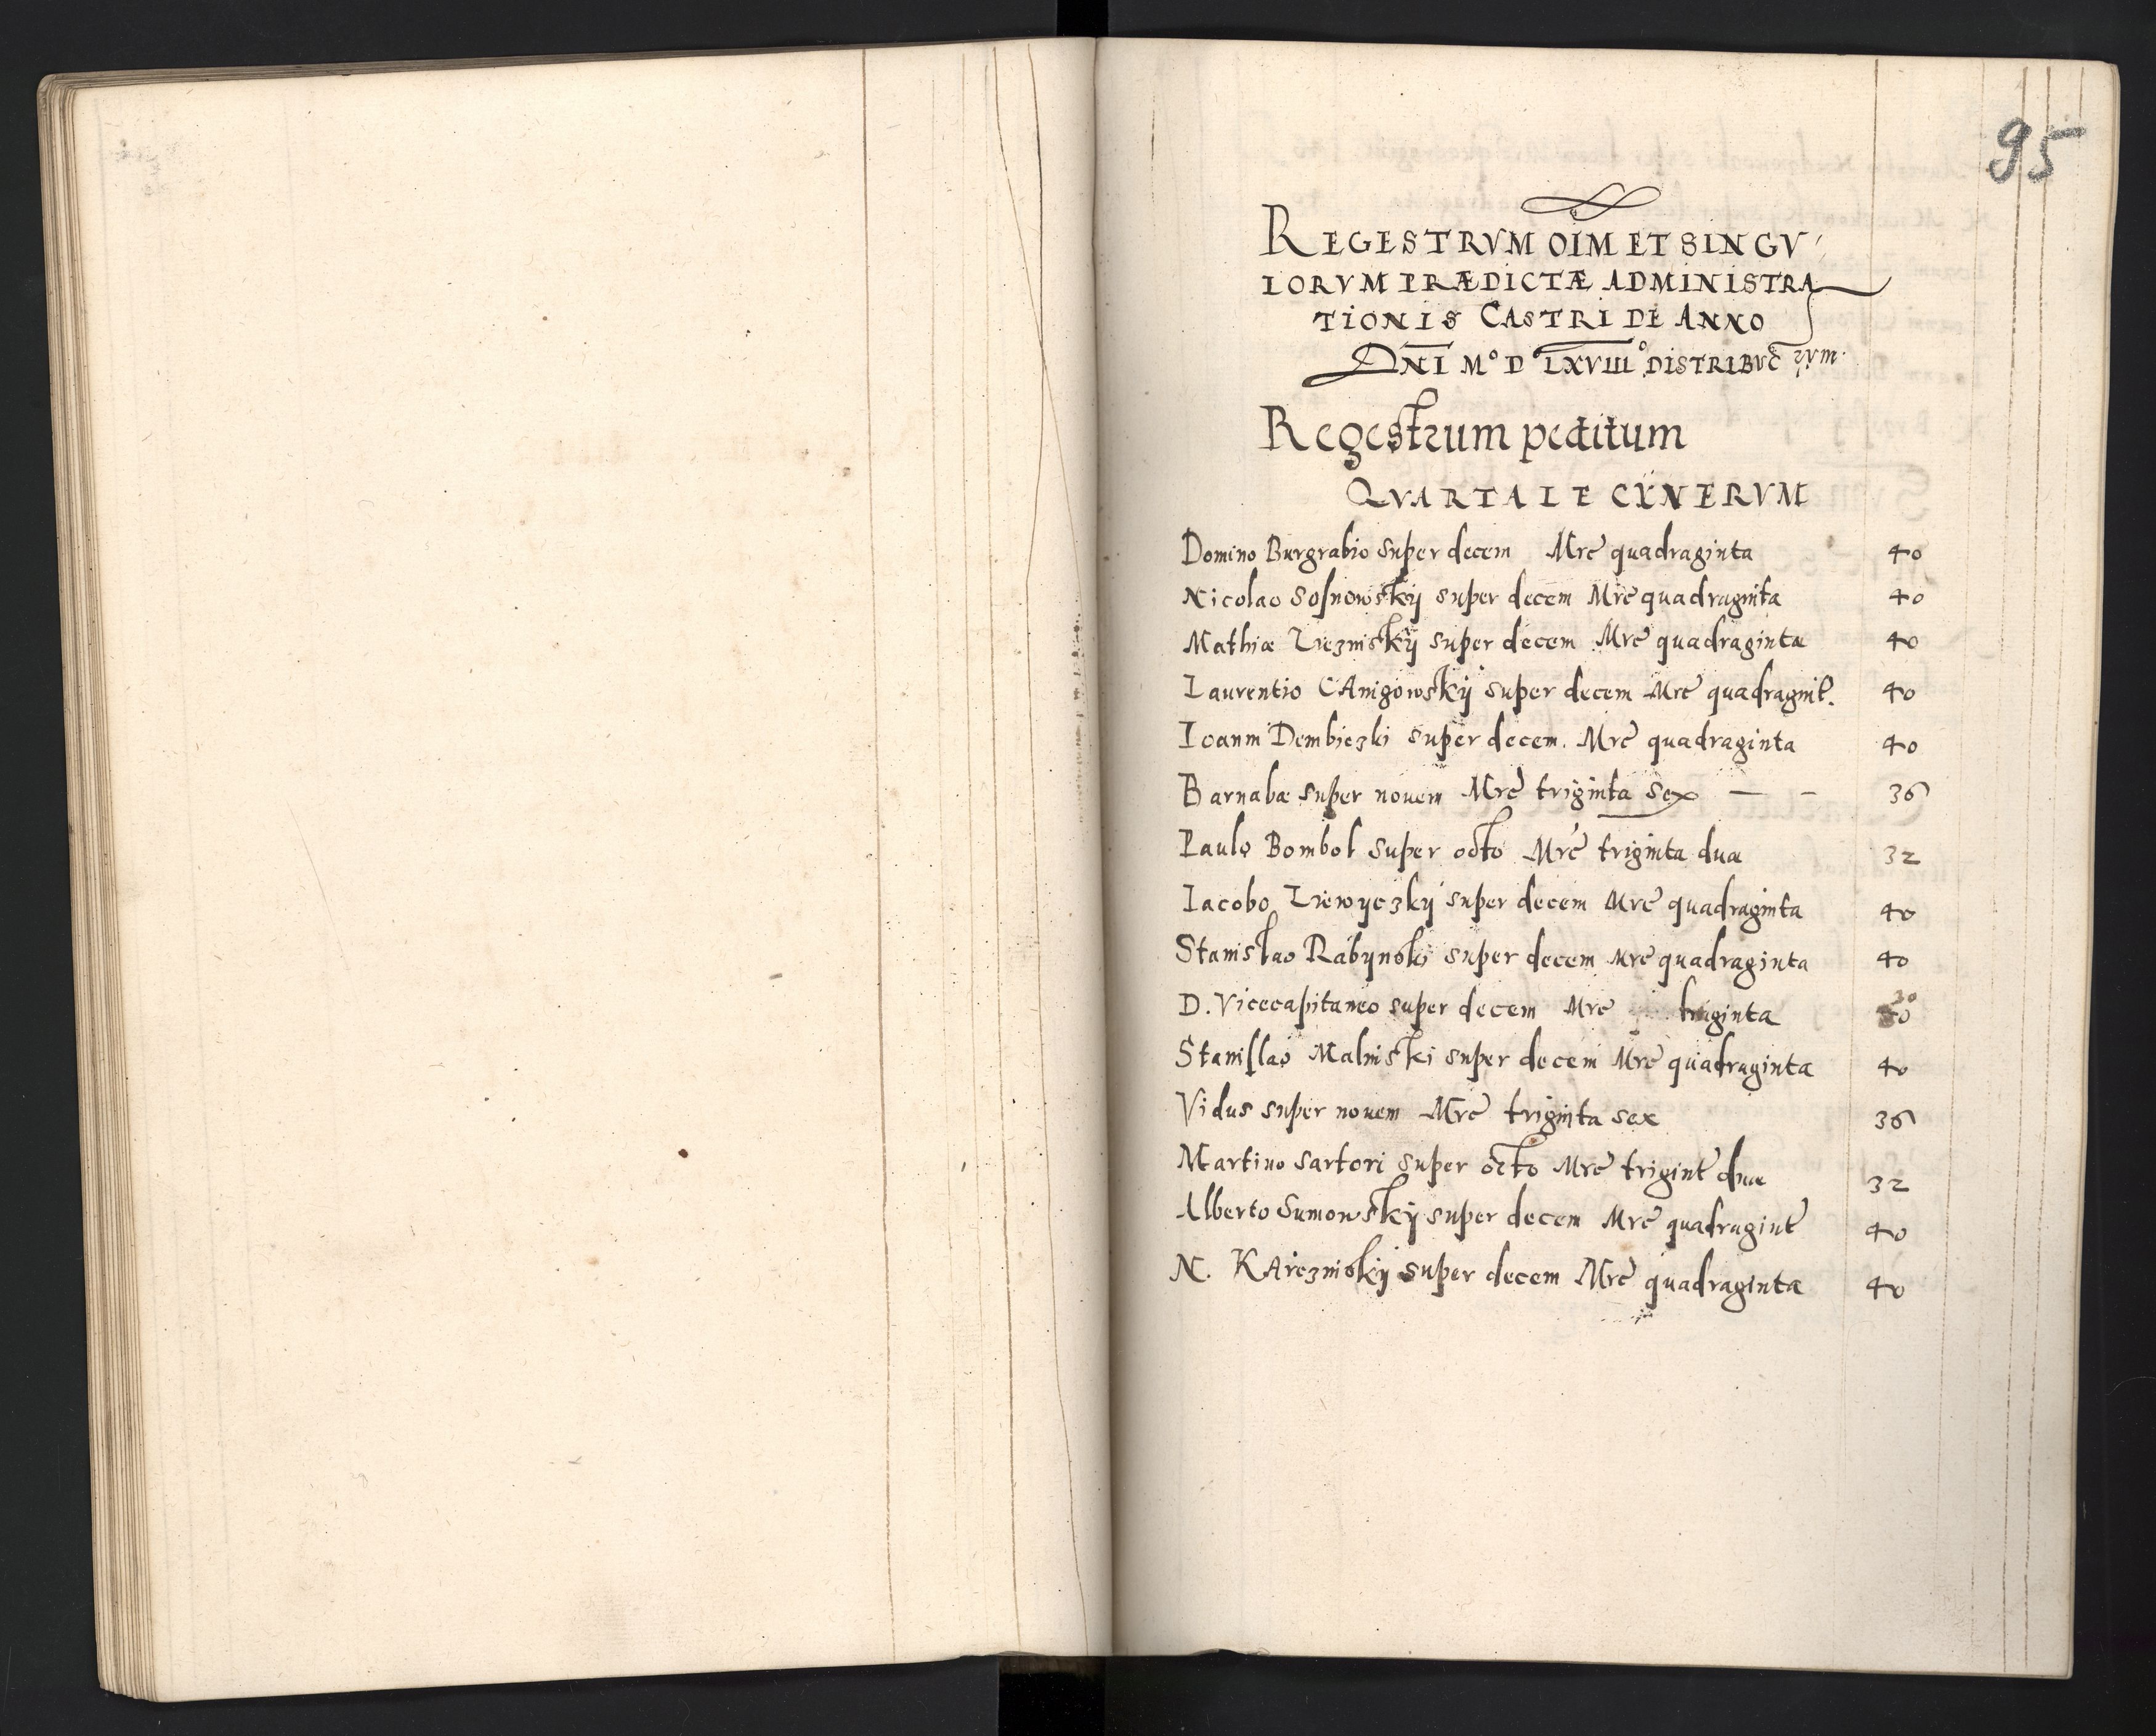 95
REGESTRVM OIM ET SINGV
LORVM PRÆDICTÆ ADMINISTRA
TIONIS CASTRI DE ANNO
DNI M° D LXVIII° DISTRIBVC rum.
Regestrum peditum
QVARTALE CYNERVM
Domino Burgrabio super decem Mrc quadraginta 40
Nicolao Sosnowsky super decem Mrc quadraginta 40
Mathiæ super decem Mrc quadraginta 40
Laurentio super decem Mrc quadragint. 40
Ioanni Dembiczki super decem. Mrc quadraginta 40
Barnabæ super nouem Mrc triginta sex — – 36
Paulo Bombol super octo Mrc triginta duæ 32
Iacobo super decem Mrc quadraginta 40
Stanislao Rabynski super decem Mrc quadraginta 40
D. Vicecapitaneo super decem Mrc triginta 30
Stanislao Malinski super decem Mrc quadraginta 40
Vidus super nouem Mrc triginta sex 36
Martino Sartori super octo Mrc trigint duæ 32
Alberto Sumowsky super decem Mrc quadragint 40
N. Karcznisky super decem Mrc quadraginta 40